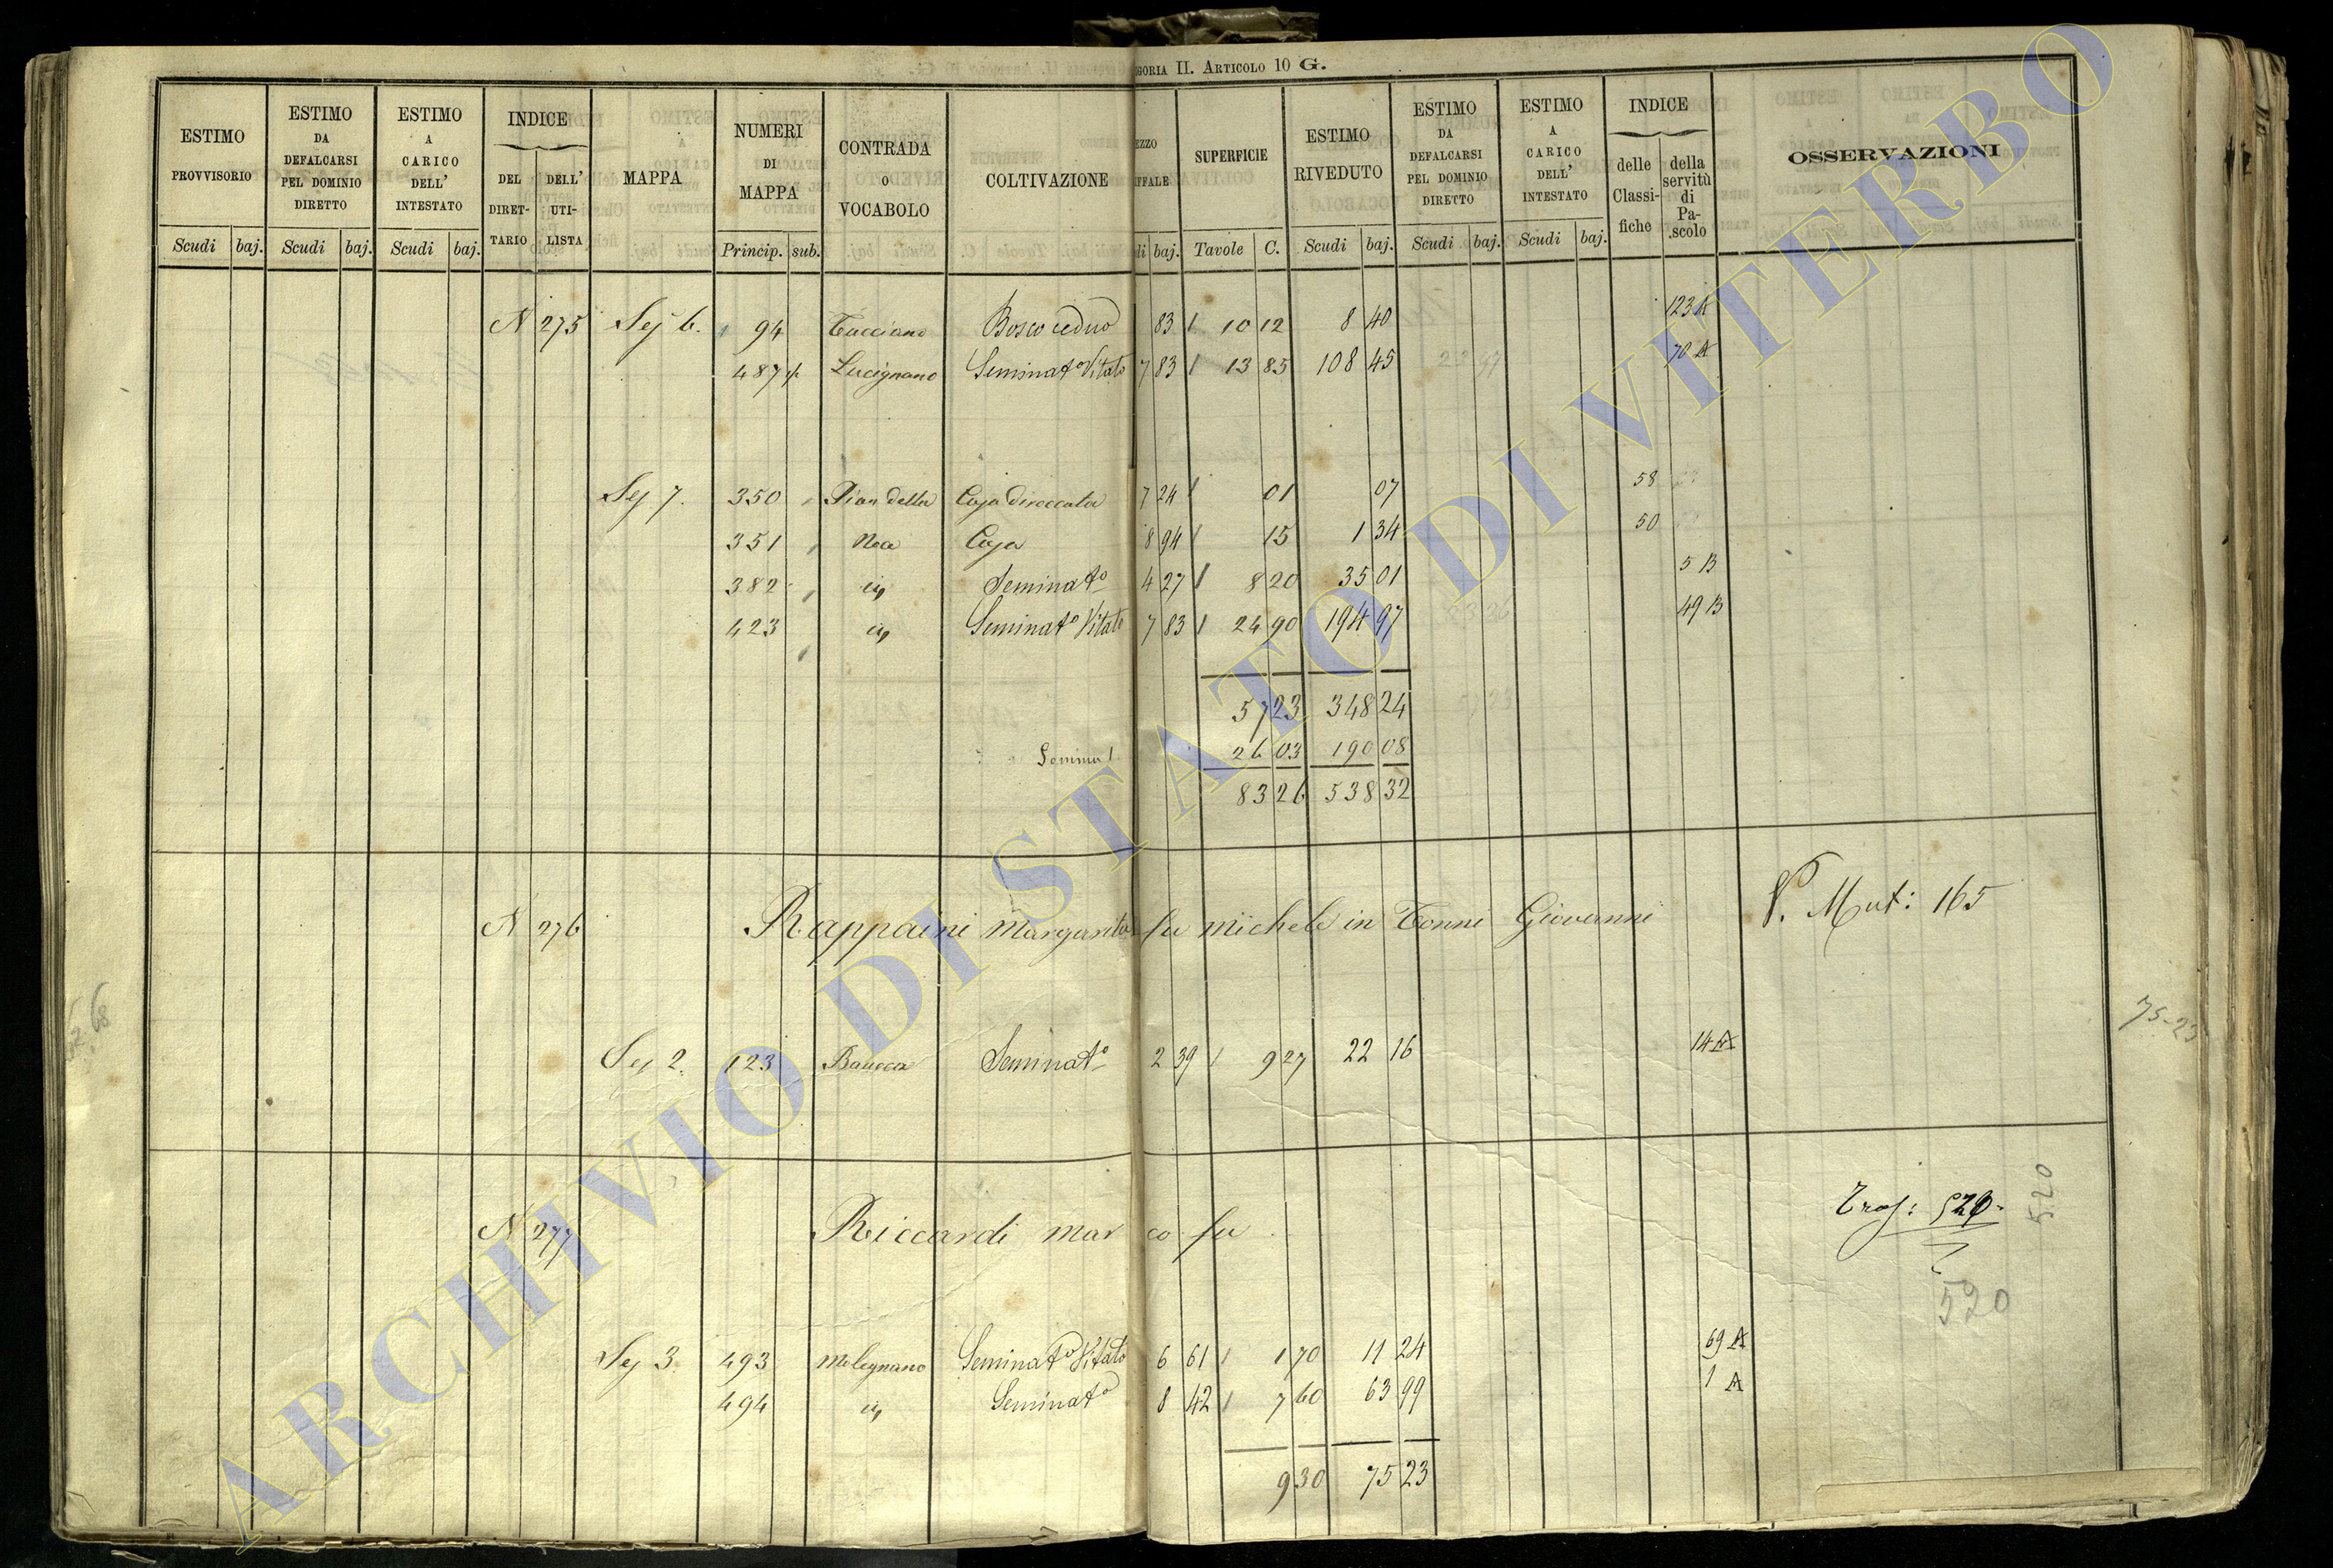 GORIA II. ARTICOLO 10 G.
ESTIMO PROVVISORIO
ESTIMO DA DEFALCARSI PEL DOMINIO DIRETTO
ESTIMO A CARICO DELL' INTESTATO
INDICE
DEL DIRET- TARIO
DELL' UTI- LISTA
MAPPA
NUMERI DI MAPPA
CONTRADA O VOCABOLO
COLTIVAZIONE
EZZO
IFFALE
SUPERFICIE
ESTIMO RIVEDUTO
ESTIMO DA DEFALCARSI PEL DOMINIO DIRETTO
ESTIMO A CARICO DELL' INTESTATO
INDICE
delle Classi- fiche
della servitù di Pa- scolo
OSSERVAZIONI
Scudi baj. Scudi baj. Scudi baj. Princip. sub. di baj. Tavole C. Scudi baj. Scudi baj. Scudi baj.
N 275 Sez 6. 94 Tucciano Bosco ceduo 83 10 12 8 40 123 A
487 Lucignano Seminato Vitato 7 83 13 85 108 45 70 A
Sez 7. 350 Pian della Casa diroccata 7 24 01 07 58
351 Noce Casa 8 94 15 1 34 50
382 id Seminato 4 27 8 20 35 01 5 B
423 id Seminato Vitato 7 83 24 90 194 97 49 B
57 23 348 24
Somma 26 03 190 08
83 26 538 32
N 276 Rappaini Margarita fu Michele in Tonni Giovanni V. Mut: 165
Sez 2. 123 Baucca Seminato 2 39 9 27 22 16 14 A
75-23
N 277 Riccardi Marco fu Tras: 520
520
520
Sez 3. 493 Melegnano Seminato Vitato 6 61 1 70 11 24 69 A
494 id Seminato 8 42 7 60 63 99 1 A
9 30 75 23
ARCHIVIO DI STATO DI VITERBO